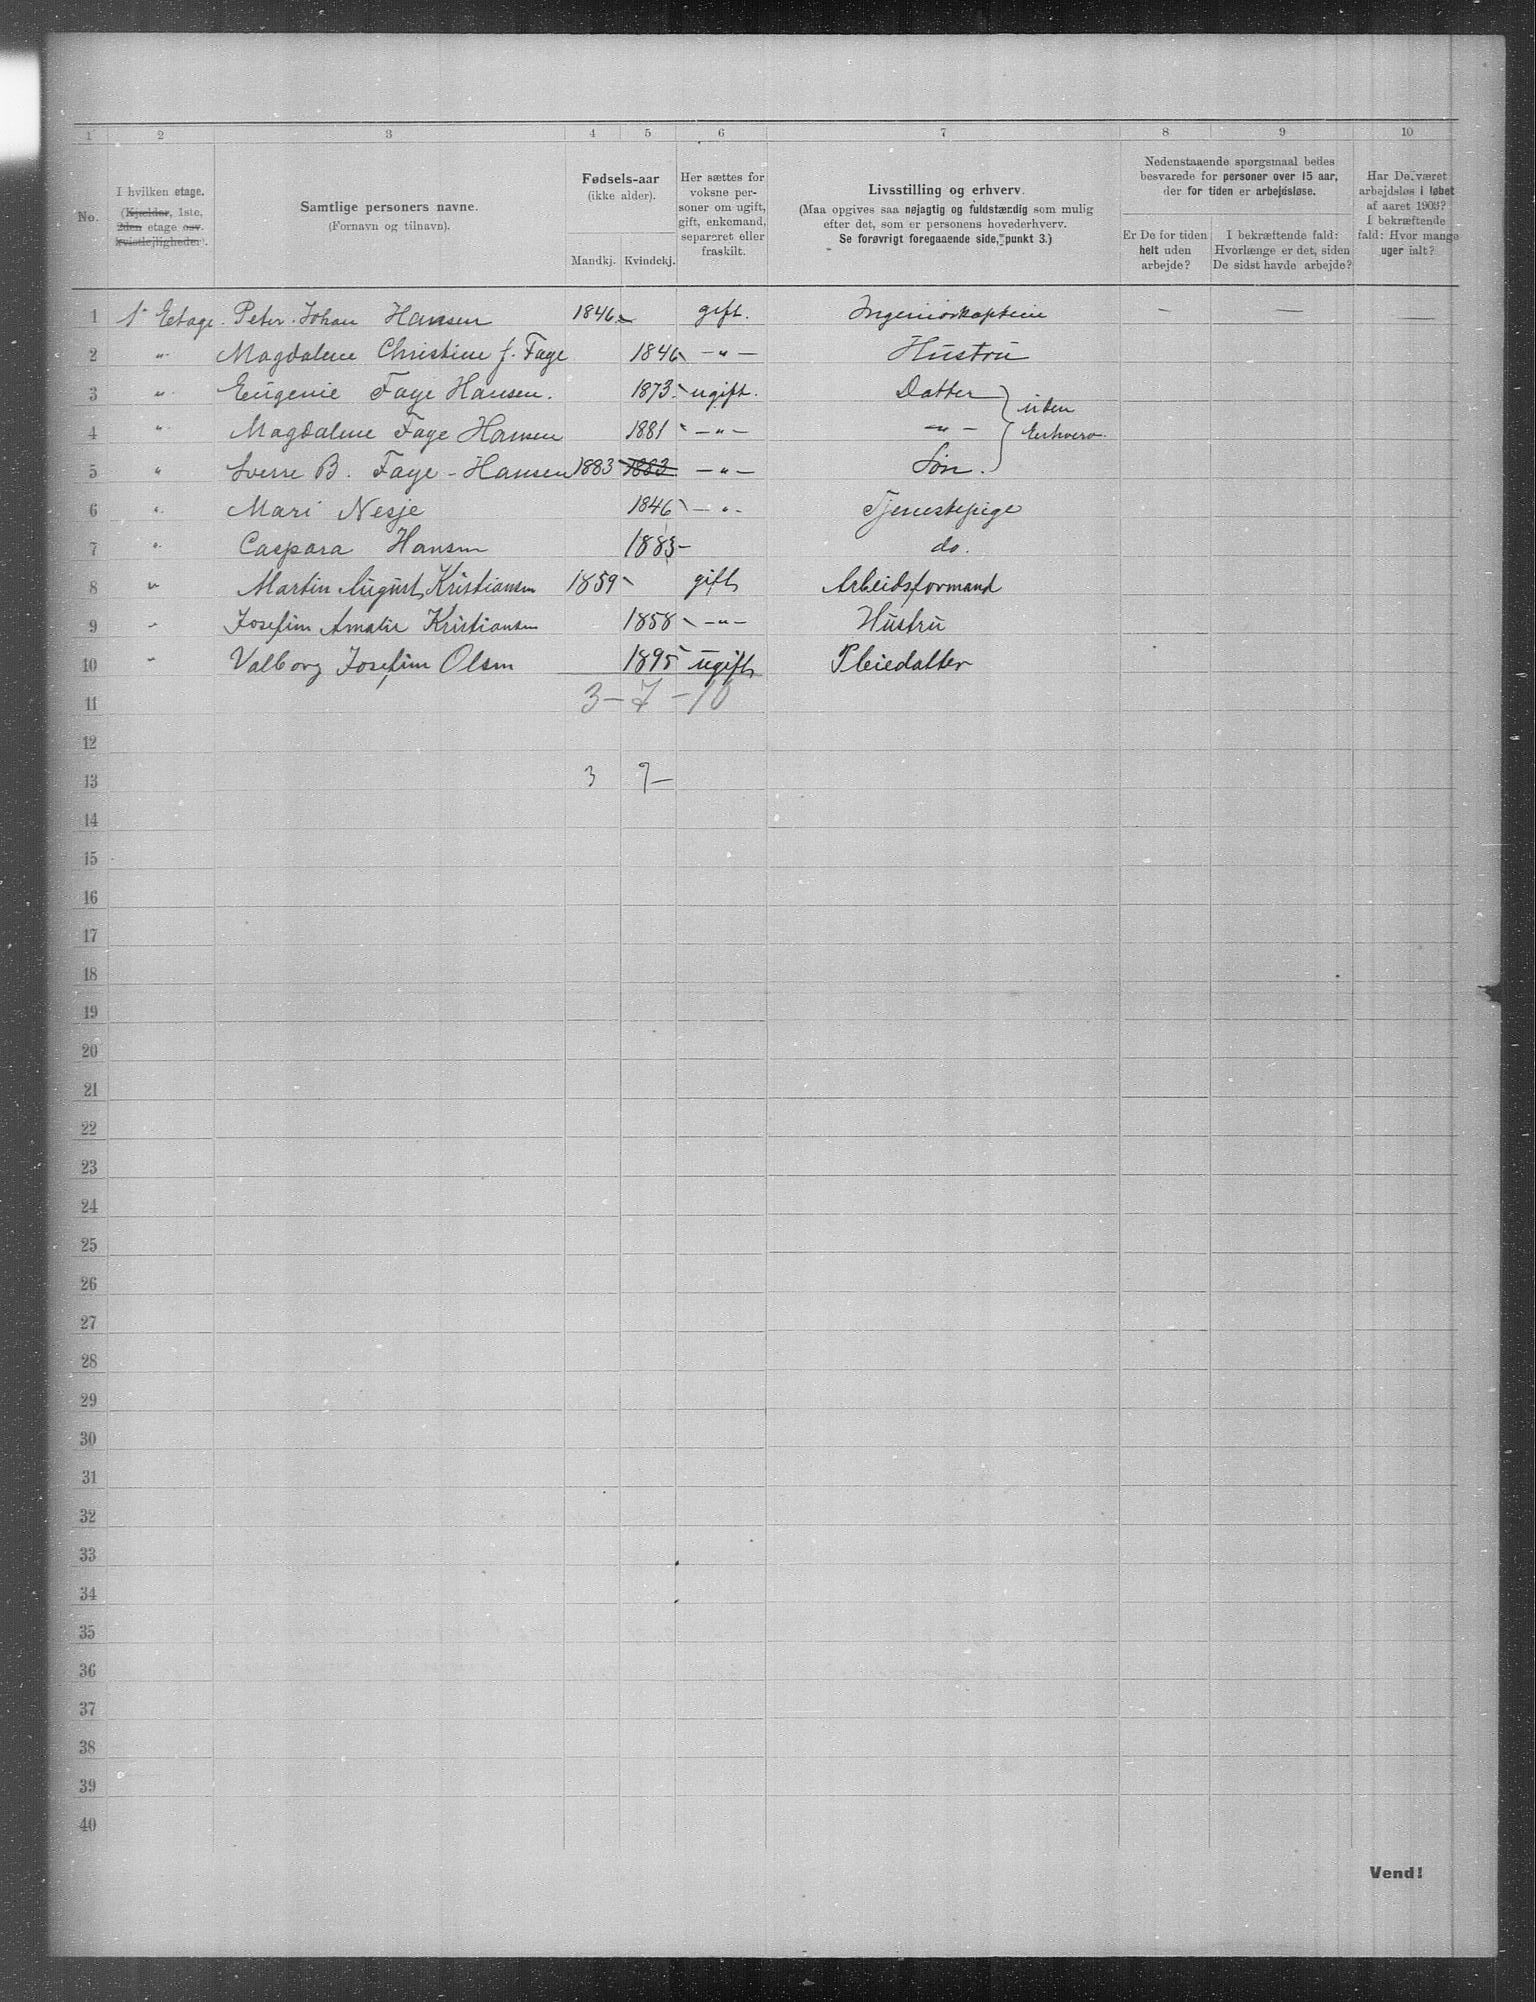 1 2 3 4 5 6 7 8 9 10
No.
I hvilken etage.
(Kjælder, 1ste,
2den etage osv.
kvistlejligheder).
Samtlige personers navne.
(Fornavn og tilnavn).
Fødsels-aar
(ikke alder).
Mandkj. Kvindekj.
Her sættes for
voksne per-
soner om ugift,
gift, enkemand,
separeret eller
fraskilt.
Livsstilling og erhverv.
(Maa opgives saa nøjagtig og fuldstændig som mulig
efter det, som er personens hovederhverv.
Se forøvrigt foregaaende side, punkt 3.)
Nedenstaaende spørgsmaal bedes
besvarede for personer over 15 aar,
der for tiden er arbejdsløse.
Er De for tiden
helt uden
arbejde?
I bekræftende fald:
Hvorlænge er det, siden
De sidst havde arbejde?
Har De været
arbejdsløs i løbet
af aaret 1903?
I bekræftende
fald: Hvor mange
uger ialt?
1 1ˢ Etage. Peter Johan Hansen 1846 gift. Ingeniørkaptein — — —
2 " Magdalene Christine f. Faye 1846 – " – Hustru
3 " Eugenie Faye Hansen. 1873 ugift. Datter } uden
4 " Magdalene Faye Hansen 1881 – " – – " – } Erhverv.
5 " Sverre B. Faye-Hansen 1883 1883 – " – Søn.
6 " Mari Nesje 1846 – " – Tjenestepige
7 " Caspara Hansen 1883 – do.
8 " Martin August Kristiansen 1859 gift Arbeidsformand
9 " Josefine Amalie Kristiansen 1858 – " – Hustru
10 " Valborg Josefine Olsen 1895 ugift Pleiedatter
11 3 – 7 – 10
12
13 3 7 –
14
15
16
17
18
19
20
21
22
23
24
25
26
27
28
29
30
31
32
33
34
35
36
37
38
39
40
Vend!